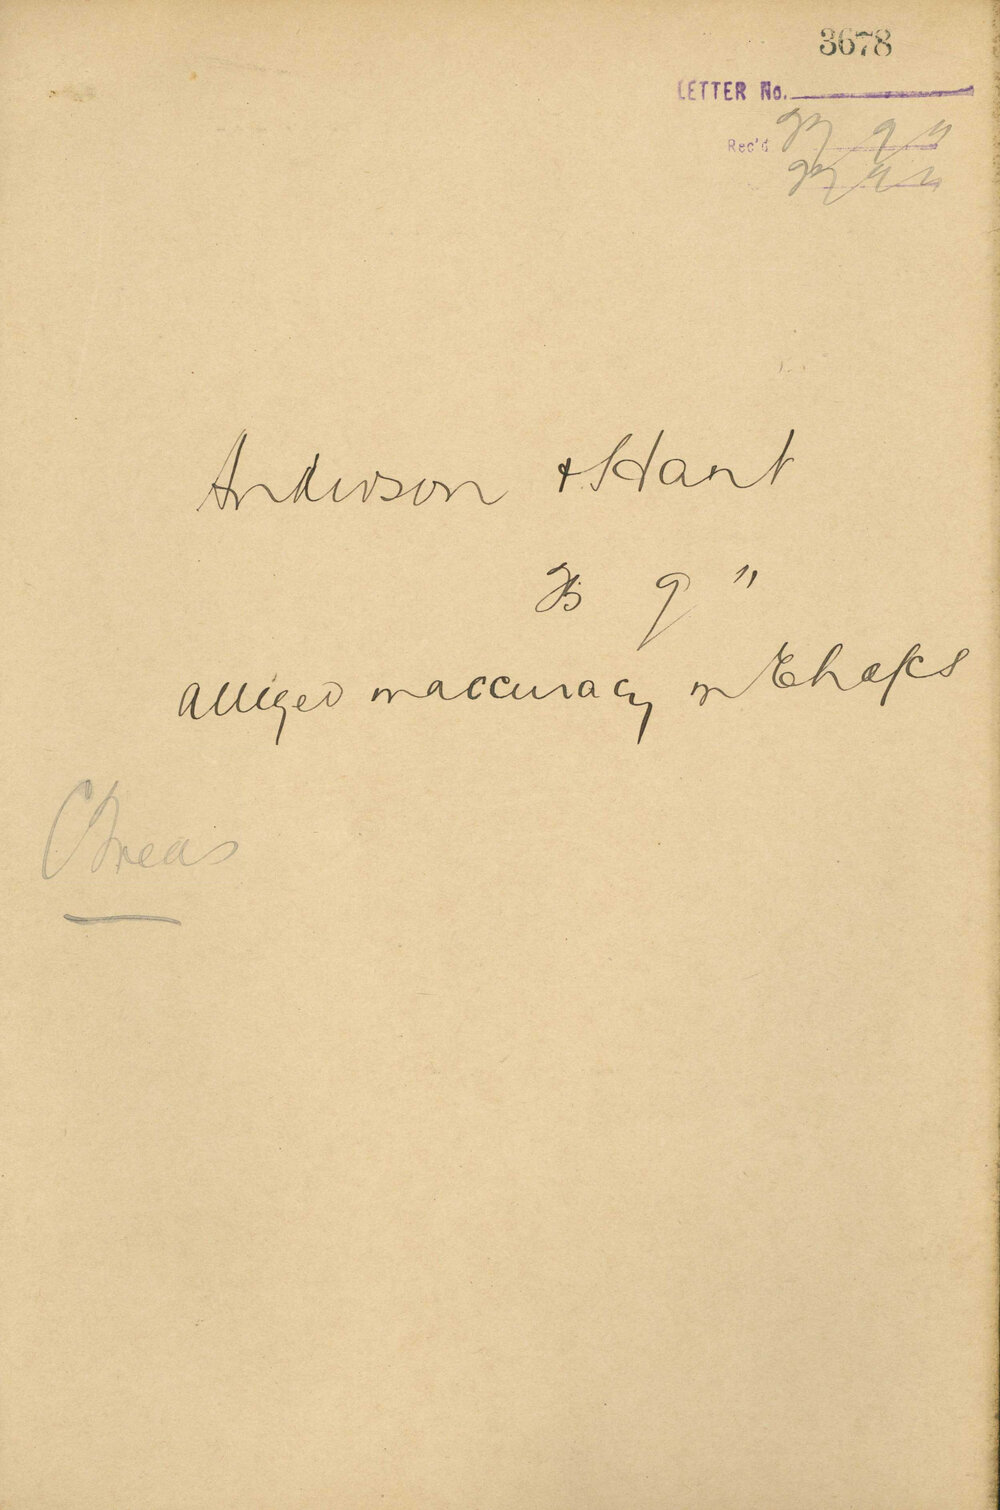 3678
LETTER No.
Rec'd
Anderson & Hant
9 "
alleged inaccuracy in
C Treas